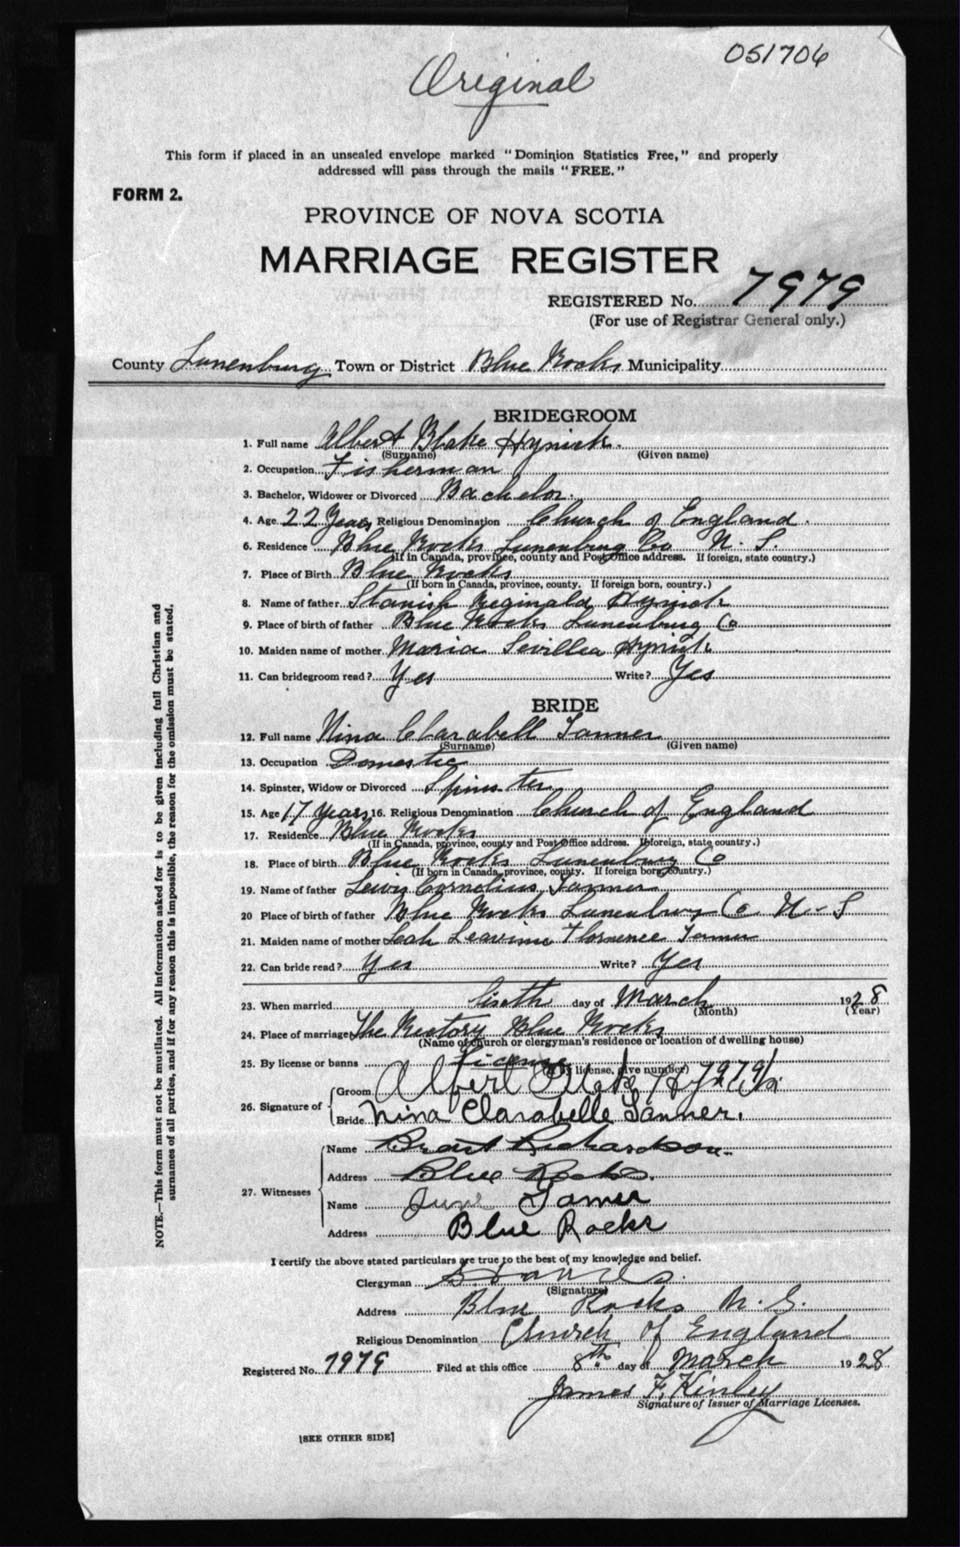 051706
Original
This form if placed in an unsealed envelope marked "Dominion Statistics Free," and properly
addressed will pass through the mails "FREE."
FORM 2.
PROVINCE OF NOVA SCOTIA
MARRIAGE REGISTER
REGISTERED No. 7979
(For use of Registrar General only.)
County Lunenburg Town or District Blue Rocks Municipality
BRIDEGROOM
1. Full name Albert Blake Hynick.
(Surname) (Given name)
2. Occupation Fisherman
3. Bachelor, Widower or Divorced Bachelor.
4. Age 22 Years Religious Denomination Church of England.
6. Residence Blue Rocks Lunenburg Co. N. S.
(If in Canada, province, county and Post Office address. If foreign, state country.)
7. Place of Birth Blue Rocks
(If born in Canada, province, county. If foreign born, country.)
8. Name of father Stanish Reginald Hynick
9. Place of birth of father Blue Rocks Lunenburg Co
10. Maiden name of mother Maria Sevillea Hynick
11. Can bridegroom read? Yes Write? Yes
BRIDE
12. Full name Nina Clarabell Tanner
(Surname) (Given name)
13. Occupation Domestic
14. Spinster, Widow or Divorced Spinster
15. Age 17 Years 16. Religious Denomination Church of England
17. Residence Blue Rocks
(If in Canada, province, county and Post Office address. If foreign, state country.)
18. Place of birth Blue Rocks Lunenburg Co
(If born in Canada, province, county. If foreign born, country.)
19. Name of father Lewis Cornelius Tanner
20 Place of birth of father Blue Rocks Lunenburg Co N-S
21. Maiden name of mother Leah Leavinia Florence Tanner
22. Can bride read? Yes Write? Yes
23. When married day of March 1928
(Month) (Year)
24. Place of marriage The Rectory Blue Rocks
(Name of church or clergyman's residence or location of dwelling house)
25. By license or banns License
(If by license, give number) 7979
26. Signature of
Groom Albert Hynick
Bride Nina Clarabelle Tanner.
27. Witnesses
Name Richardson
Address Blue Rocks.
Name Tanner
Address Blue Rocks
I certify the above stated particulars are true to the best of my knowledge and belief.
Clergyman
(Signature)
Address Blue Rocks N. S.
Religious Denomination Church of England
Registered No. 7979 Filed at this office 8th day of March 1928
James F. Kinley
Signature of Issuer of Marriage Licenses.
[SEE OTHER SIDE]
NOTE.—This form must not be mutilated. All information asked for is to be given including full Christian and
surnames of all parties, and if for any reason this is impossible, the reason for the omission must be stated.